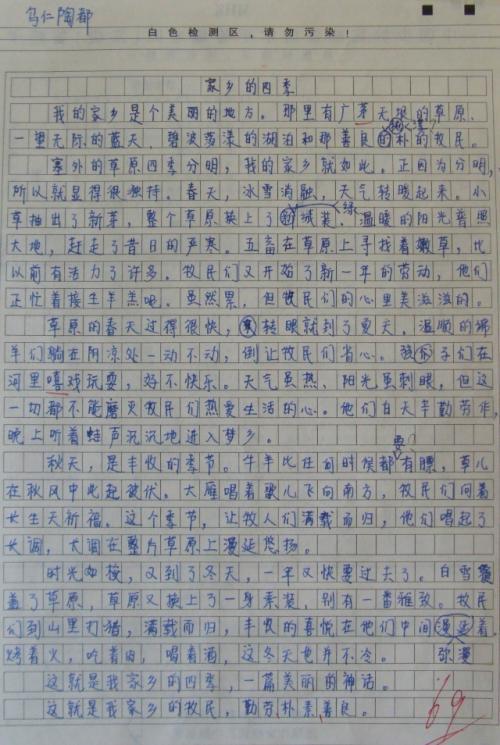 乌仁陶都
白色检测区，请勿污染！
家乡的四季
我的家乡是个美丽的地方。那里有广茅无垠的草原、
一望无际的蓝天、碧波荡漾的湖泊和那善良的朴的牧民。
塞外的草原四季分明，我的家乡就如此。正因为分明，
所以就显得很独特。春天，冰雪消融，天气转暖起来。小
绿
草抽出了新芽，整个草原换上了的城装，温暖的阳光普照
大地，赶走了昔日的严寒。五畜在草原上寻找着嫩草，比
以前有活力了许多。牧民们又开始了新一年的劳动，他们
正忙着接生羊羔呢。虽然累，但牧民们的心里美滋滋的。
草原的春天过得很快，转眼就到了夏天，温顺的绵
羊们躺在阴凉处一动不动，倒让牧民们省心。孩子们在
河里嘻戏玩耍，好不快乐。天气虽热、阳光虽刺眼，但这
一切都不能磨灭牧民们热爱生活的心。他们白天辛勤劳作，
晚上听着蛙声沉沉地进入梦乡。
秋天，是丰收的季节。牛羊比任何时侯都有膘，草儿
在秋风中此起彼伏。大雁唱着歌儿飞向南方，牧民们向着
长生天祈福。这个季节，让牧人们满载而归，他们唱起了
长调，长调在整片草原上漫延悠扬。
时光如梭，又到了冬天，一年又快要过去了。白雪覆
盖了草原，草原又换上了一身素装，别有一番雅致。牧民
们到山里打猎，满载而归，丰收的喜悦在他们中间漫延着。
弥漫
烤着火，吃着肉，喝着酒，这冬天也并不冷。
这就是我家乡的四季，一篇美丽的神话。
这就是我家乡的牧民，勤劳、朴素、善良。
69